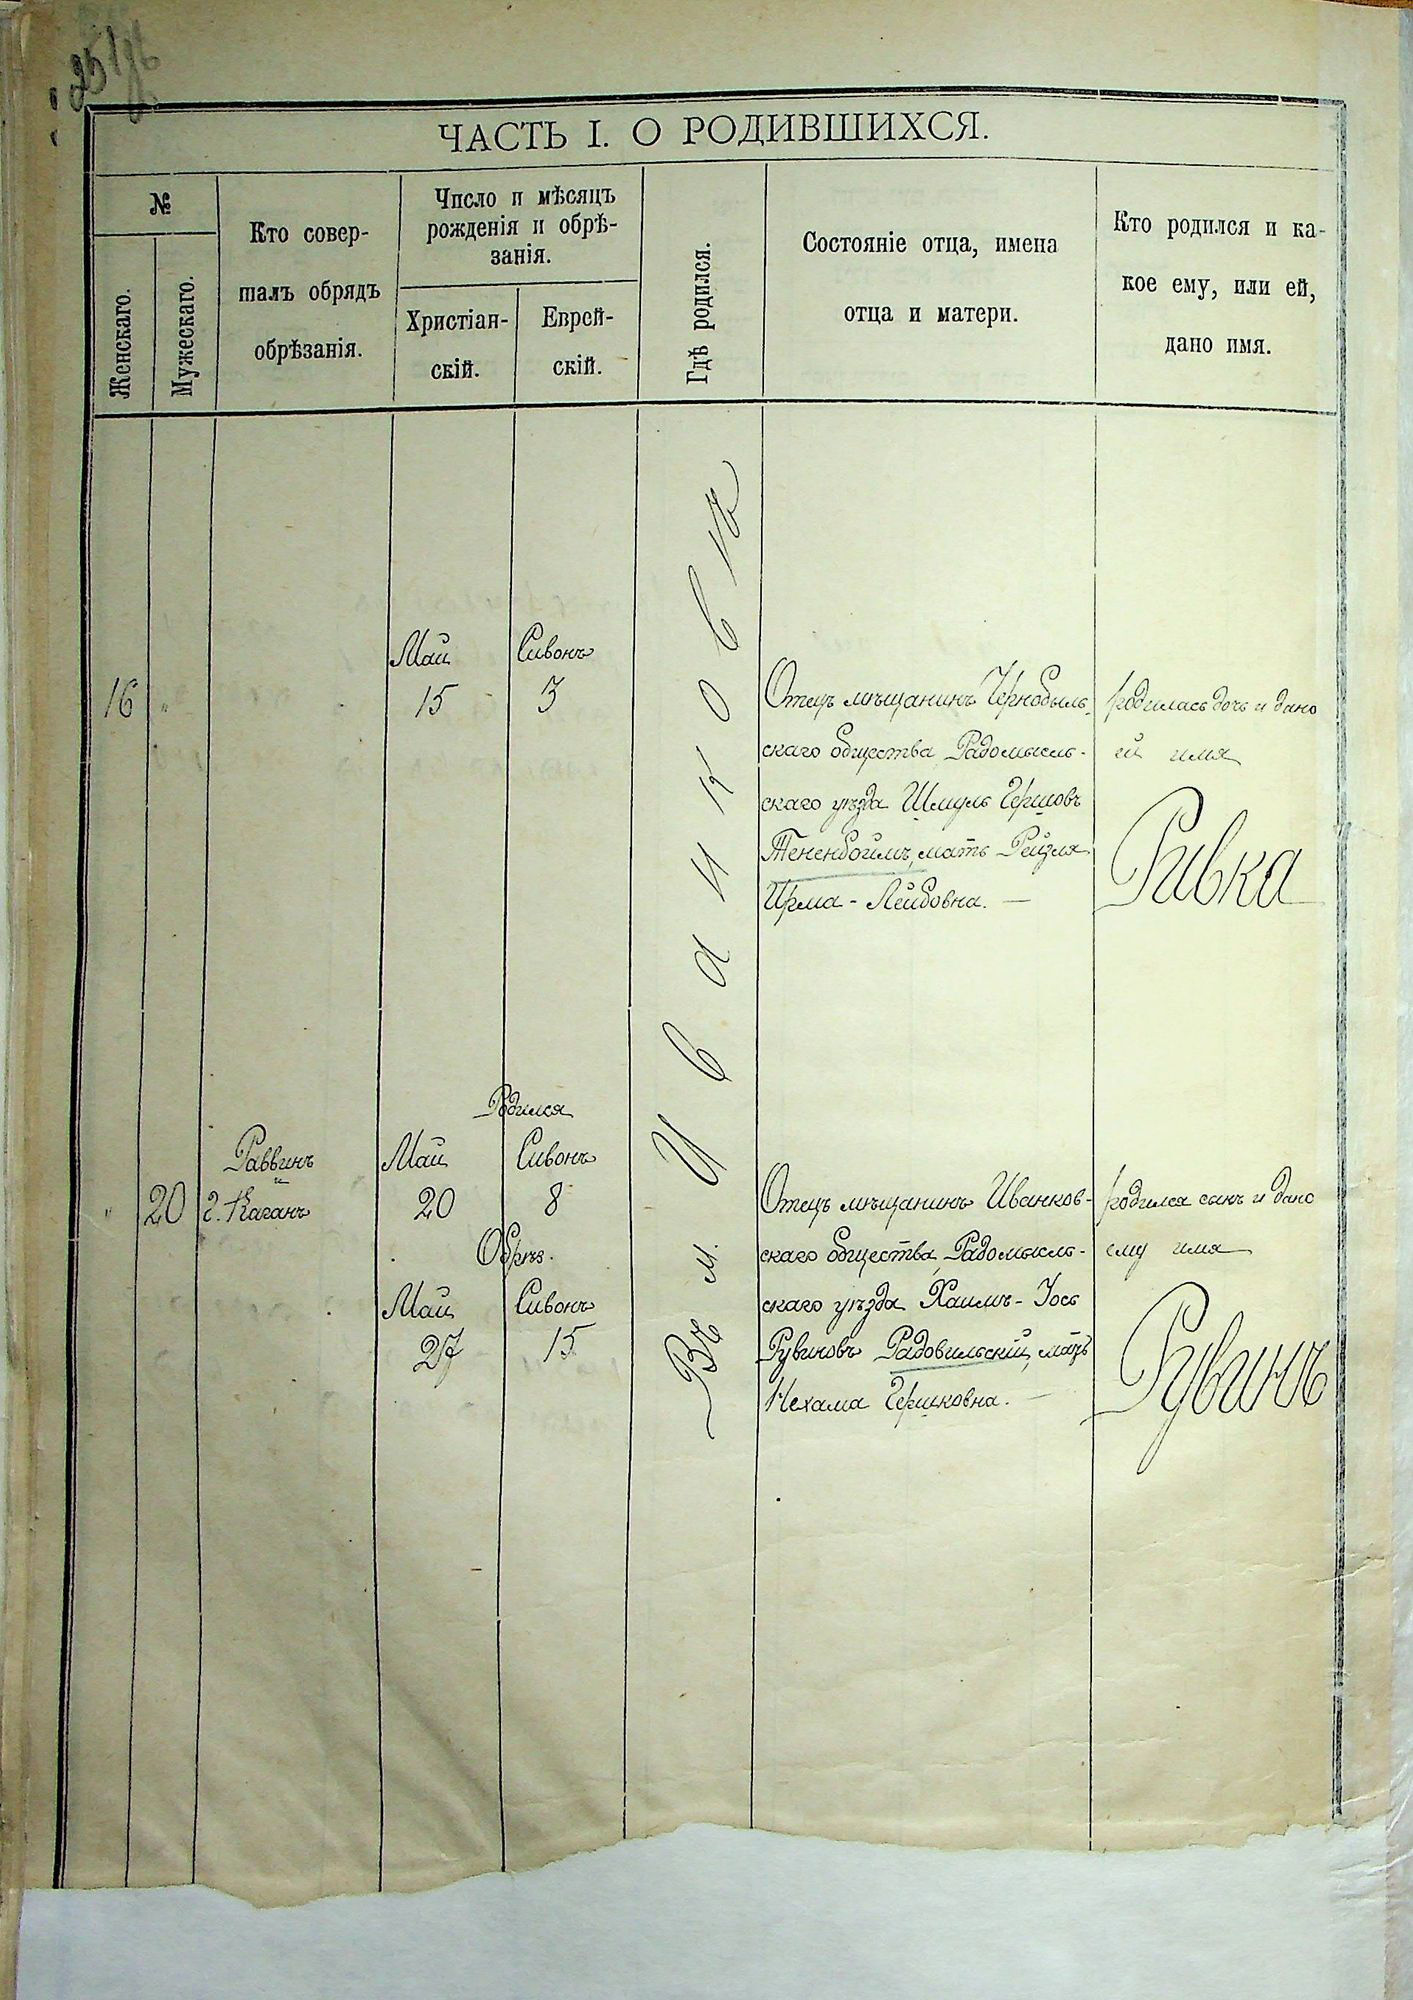 ЧАСТЬ I. О РОДИВШИХСЯ.
№
Женскаго.
Мужескаго.
Кто совер-
шалъ обрядъ
обрѣзанія.
Число и мѣсяцъ
рожденія и обрѣ-
занія.
Христіан-
скій.
Еврей-
скій.
Гдѣ родился.
Состояніе отца, имена
отца и матери.
Кто родился и ка-
кое ему, или ей,
дано имя.
Въ м. Иванковѣ
Май Сивонъ
16 " 15 3
Отецъ мѣщанинъ Чернобыль-
скаго общества, Радомысль-
скаго уѣзда Шмуль Гершовъ
Тененбоимъ, мать Рейзля
Ирма-Лейбовна. —
родилась дочь и дано
ей имя
Ривка
Родился
Раввинъ
Май Сивонъ
" 20 г. Каганъ 20 8
Обрѣз.
Май Сивонъ
27 15
Отецъ мѣщанинъ Иванков-
скаго общества, Радомысль-
скаго уѣзда Хаимъ-Іось
Рувиновъ Радовильскій, мать
Нехама Гершковна. —
родился сынъ и дано
ему имя
Рувинъ